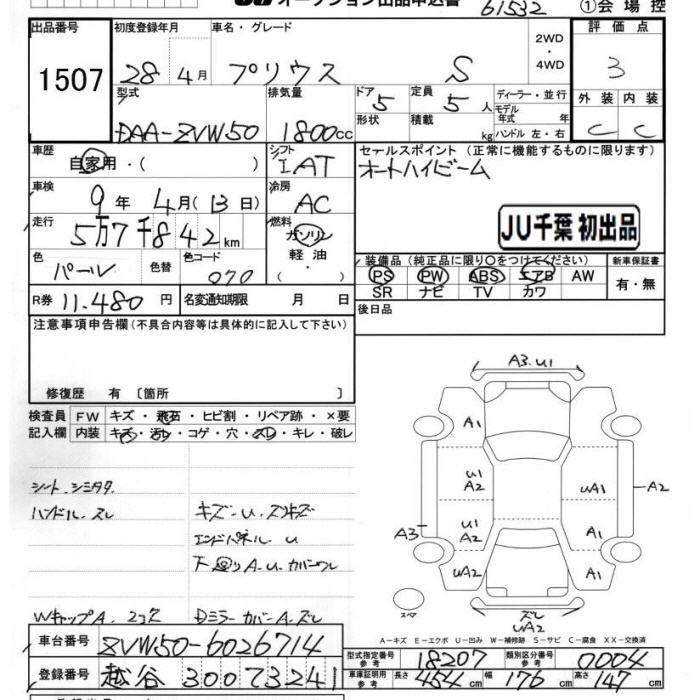 オークション出品申込書 61532 ①会場控
出品番号 1507
初度登録年月 28年 4月
車名・グレード プリウス S
2WD・4WD
評価点 3
外装 C 内装 C
型式 DAA-ZVW50
排気量 1800cc
ドア 5 形状
定員 5人 積載 kg
ディーラー・並行
モデル年式 年
ハンドル 左・右
車歴 自家用・( )
シフト IAT
セールスポイント (正常に機能するものに限ります)
オートハイビーム
車検 9年 4月(13日)
冷房 AC
走行 5万7千842km
燃料 ガソリン 軽油・( )
JU千葉 初出品
色 パール 色替 色コード 070
装備品(純正品に限り○をつけてください) 新車保証書
PS PW ABS エアB AW 有・無
SR ナビ TV カワ
R券 11,480円 名変通知期限 月 日
後日品
注意事項申告欄(不具合内容等は具体的に記入して下さい)
修復歴 有 〔箇所 〕
検査員 FW キズ・飛石・ヒビ割・リペア跡・×要
記入欄 内装 キズ・汚レ・コゲ・穴・スレ・キレ・破レ
シート、シミタタ
ハンドル、スレ
キズ・U、スリキズ
エンドパネル U
下廻りA.U.カバーワレ
Wキャップ A、2コ欠
Dミラー カバーA、ズレ
A3.U1
A1
U1 A2
UA1
A2
A3
U1 A2
A1
UA2
A1
スペア
ズレ UA2
A-キズ E-エクボ U-凹み W-補修跡 S-サビ C-腐食 XX-交換済
車台番号 ZVW50-6026714
型式指定番号 参考 18207 類別区分番号 参考 0004
登録番号 越谷 300 73241
車庫証明用 参考 長さ 454cm 幅 176cm 高さ 147cm